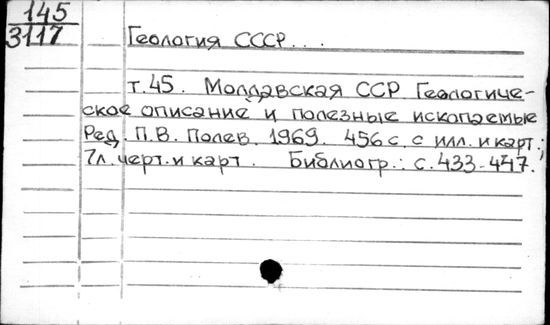 145
3117
Геология СССР...
т.45. Молдавская ССР Геологиче-
ское описание и полезные ископаемые
Ред. П.В. Полев. 1969. 456 с. с илл. и карт.;
7л. черт. и карт. Библиогр.: с. 433-447.